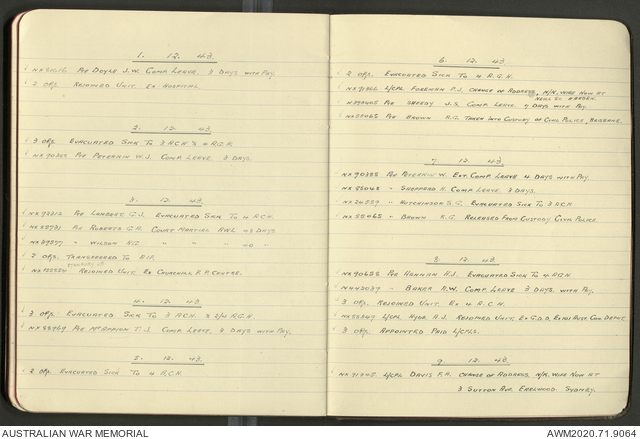 1. 12. 43.
Pte Doyle J.W. Comp. Leave. 3 Days with Pay.
2 O/R. Rejoined Unit. Ex Hospital
2. 12. 43.
3 O/R. Evacuated Sick To 3 A.C.H. & 4 R.G.H.
NX90388 Pte Peterkin W.J. Comp. Leave 3 Days.
3. 12. 43.
Pte Lambert G.J. Evacuated Sick To 4 A.C.H.
Pte Roberts G.R. Court Martial AWL 45 Days
" Wilson " " "
2 O/R. Transferred To A.I.F.
Rejoined Unit, Ex Churchill Course.
4. 12. 43.
3 O/R. Evacuated Sick To 3 A.C.H. & 2/4 R.G.H.
Pte T.J. Comp. Leave, 3 Days with Pay.
5. 12. 43.
2 O/R Evacuated Sick To 4 A.C.H.
6. 12. 43.
2 O/R. Evacuated Sick To 4 R.G.H.
L/Cpl Foreman P.J. Change of Address, N/K. Wife Now At
Pte Greedy J.S. Comp. Leave 7 Days with Pay.
NX55065 Pte Brown R.G. Taken Into Custody of Civil Police, Brisbane.
7 12. 43.
NX90388 Pte Peterkin W. Ext Comp. Leave 4 Days with Pay.
" Shepperd H. Comp. Leave 3 Days.
" Hutchinson S.G. Evacuated Sick To 3 A.C.H
NX55065 " Brown R.G. Released From Custody Civil Police.
8 12. 43.
NX90658 Pte Hannan H.J. Evacuated Sick To 4 R.G.H.
" Baker A.W. Comp. Leave 3 Days with Pay.
3 O/R. Rejoined Unit. Ex 4 A.C.H.
L/Cpl Hyde A.J. Rejoined Unit, Ex G.D.D.
3 O/R Appointed Paid L/Cpls.
9 12. 43.
L/Cpl Davis F.R. Change of Address. N/K. Wife Now At
3 Sutton Ave Earlwood Sydney.
AUSTRALIAN WAR MEMORIAL
AWM2020.71.9064